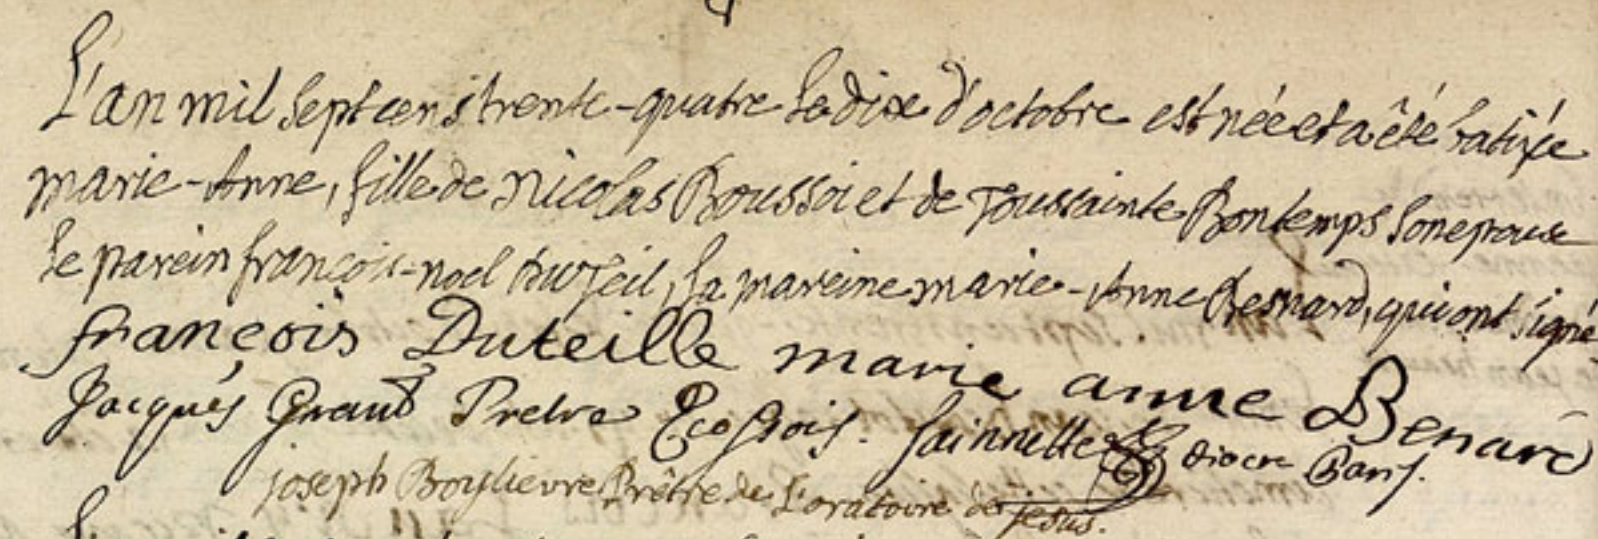 L'an mil sept cens trente-quatre le dix d'octobre est née et a été batisée
marie-Anne, fille de Nicolas Roussoi et de Toussainte Bontemps son epouse
le parein françois-noel duteil, la mareine marie-Anne Besnard, qui ont signé
françois Duteille marie anne Benard
Jacques Grant Pretre Ecossois. Sainnette diacre Paris.
joseph Boylievre Prêtre de l'oratoire de jesus.